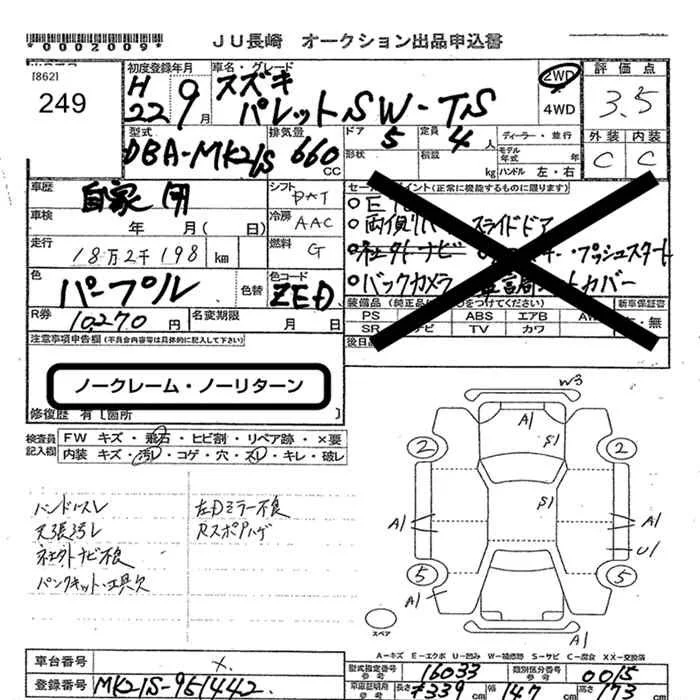 *0002009*
JU長崎 オークション出品申込書
[862]
249
初度登録年月 車名・グレード 2WD 評価点
H 22 9月 スズキ
パレットSW-TS 4WD 3.5
型式 排気量 ドア 定員 ディーラー・並行 外装 内装
DBA-MK21S 660 CC 5 4人 モデル年式 年 C C
形状 積載 kg ハンドル 左・右
車歴 自家用 シフト DAT セールスポイント(正常に機能するものに限ります)
車検 年 月( 日) 冷房 AAC 両側 スライドドア
走行 18万2千198 km 燃料 G 社外ナビ ・プッシュスタート
色 パープル 色替 色コード ZED バックカメラ カバー
装備品(純正品に をつけてください) 新車保証書
R券 10,270円 名変期限 月 日 PS ABS エアB AW 有・無
SR ナビ TV カワ
注意事項申告欄(不具合内容等は具体的に記入して下さい) 後日品
ノークレーム・ノーリターン
修復歴 有 [箇所 ]
検査員記入欄 FW キズ・飛石・ヒビ割・リペア跡・×要
内装 キズ・汚レ・コゲ・穴・スレ・キレ・破レ
W3
A1
S1
2 2
S1
A1 A1
U1
5 5
A1
A1
スペア
ハンドルスレ 左Dミラー不良
天張汚レ Rスポアハゲ
社外ナビ不良
パンクキット・工具欠
A-キズ E-エクボ U-凹み W-補修跡 S-サビ C-腐食 XX-交換済
車台番号 型式指定番号 16033 類別区分番号 0015
登録番号 MK21S-951442 車庫証明用参考 長さ 339 cm 幅 147 cm